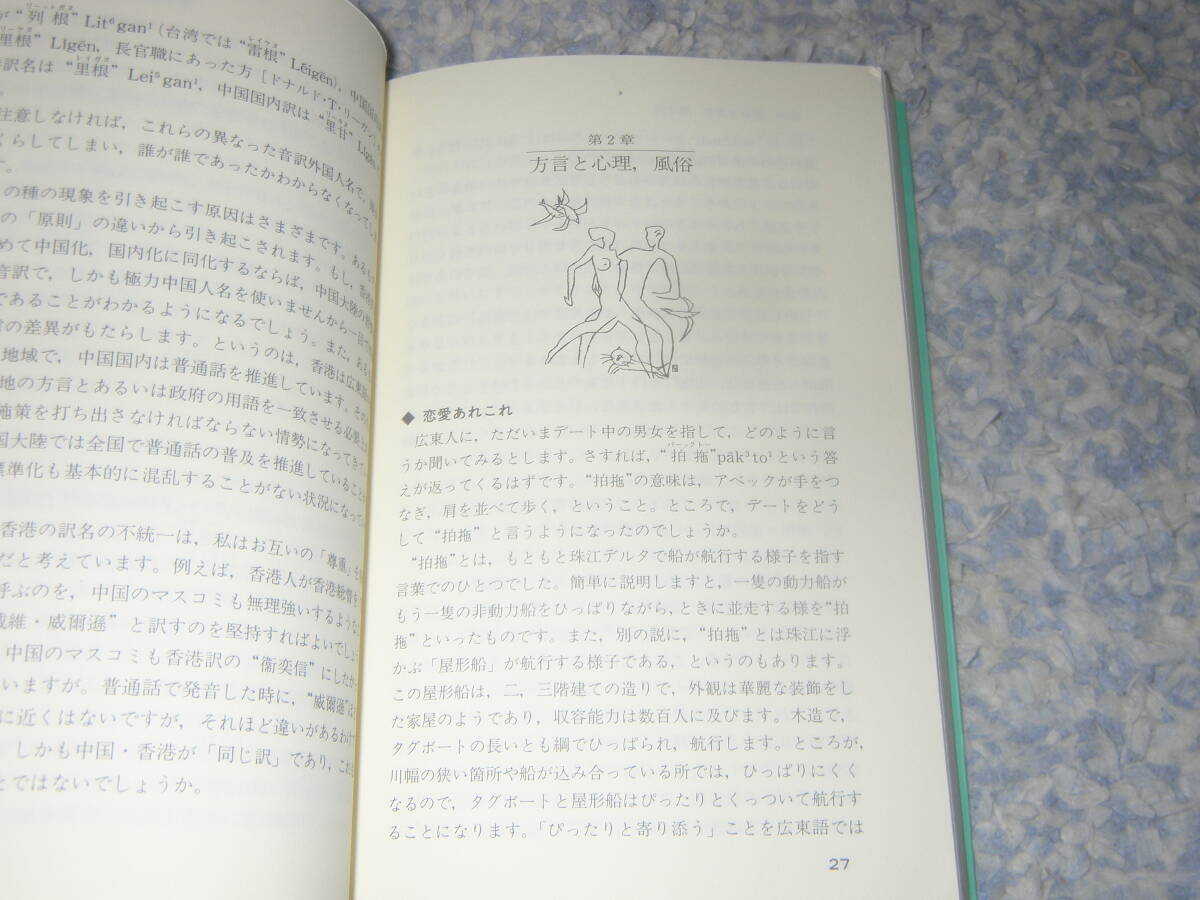 が“列根”Lit⁶gan¹(台湾では“雷根”Léigēn),
里根”Lǐgēn, 長官職にあった方[ドナルド・T・リーガン]
訳名は“里根”Lei⁵gan¹, 中国国内訳は“里甘”
注意しなければ, これらの異なった音訳外国人名で,
くらしてしまい, 誰が誰であったかわからなくなってし
す。
の種の現象を引き起こす原因はさまざまです。あるも
の「原則」の違いから引き起こされます。もし, 香港
めて中国化, 国内化に同化するならば, 中国大陸の
音訳で, しかも極力中国人名を使いませんから一目で
であることがわかるようになるでしょう。また, ある
言の差異がもたらします。というのは, 香港は広東語
地域で, 中国国内は普通話を推進しています。その
地の方言とあるいは政府の用語を一致させる必要
施策を打ち出さなければならない情勢になってき
国大陸では全国で普通話の普及を推進していること
標準化も基本的に混乱することがない状況になって
香港の訳名の不統一は, 私はお互いの「尊重」を
だと考えています。例えば, 香港人が香港総督を
呼ぶのを, 中国のマスコミも無理強いするような
維・威爾遜”と訳すのを堅持すればよいでしょ
中国のマスコミも香港訳の“衞奕信”にしたか
いますが。普通話で発音した時に, “威爾遜”
に近くはないですが, それほど違いがあるわけ
しかも中国・香港が「同じ訳」であり, これ
とではないでしょうか。
第2章
方言と心理, 風俗
◆ 恋愛あれこれ
広東人に, ただいまデート中の男女を指して, どのように言
うか聞いてみるとします。さすれば, “拍拖”pāk³to¹という答
パーックトー
えが返ってくるはずです。“拍拖”の意味は, アベックが手をつ
なぎ, 肩を並べて歩く, ということ。ところで, デートをどう
して“拍拖”と言うようになったのでしょうか。
“拍拖”とは, もともと珠江デルタで船が航行する様子を指す
言葉でのひとつでした。簡単に説明しますと, 一隻の動力船が
もう一隻の非動力船をひっぱりながら, ときに並走する様を“拍
拖”といったものです。また, 別の説に, “拍拖”とは珠江に浮
かぶ「屋形船」が航行する様子である, というのもあります。
この屋形船は, 二, 三階建ての造りで, 外観は華麗な装飾をし
た家屋のようであり, 収容能力は数百人に及びます。木造で,
タグボートの長いとも綱でひっぱられ, 航行します。ところが,
川幅の狭い箇所や船が込み合っている所では, ひっぱりにくく
なるので, タグボートと屋形船はぴったりとくっついて航行す
ることになります。「ぴったりと寄り添う」ことを広東語では
27